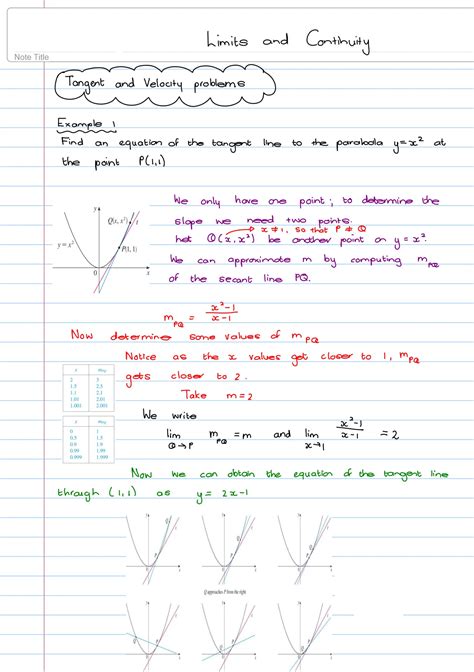 Limits and Continuity
Note Title
Tangent and Velocity problems
Example 1
Find an equation of the tangent line to the parabola y=x² at
the point P(1,1)
We only have one point; to determine the
slope we need two points.
x≠1, so that P≠Q
Let Q(x,x²) be another point on y=x².
We can approximate m by computing m_PQ
of the secant line PQ.
y
Q(x, x²)
t
y = x²
P(1, 1)
0
x
m_PQ = (x²-1)/(x-1)
Now determine some values of m_PQ
Notice as the x values get closer to 1, m_PQ
gets closer to 2.
Take m=2
x m_PQ
2 3
1.5 2.5
1.1 2.1
1.01 2.01
1.001 2.001
We write
lim Q→P m_PQ = m and lim x→1 (x²-1)/(x-1) = 2
x m_PQ
0 1
0.5 1.5
0.9 1.9
0.99 1.99
0.999 1.999
Now we can obtain the equation of the tangent line
through (1,1) as y = 2x-1
Q approaches P from the right